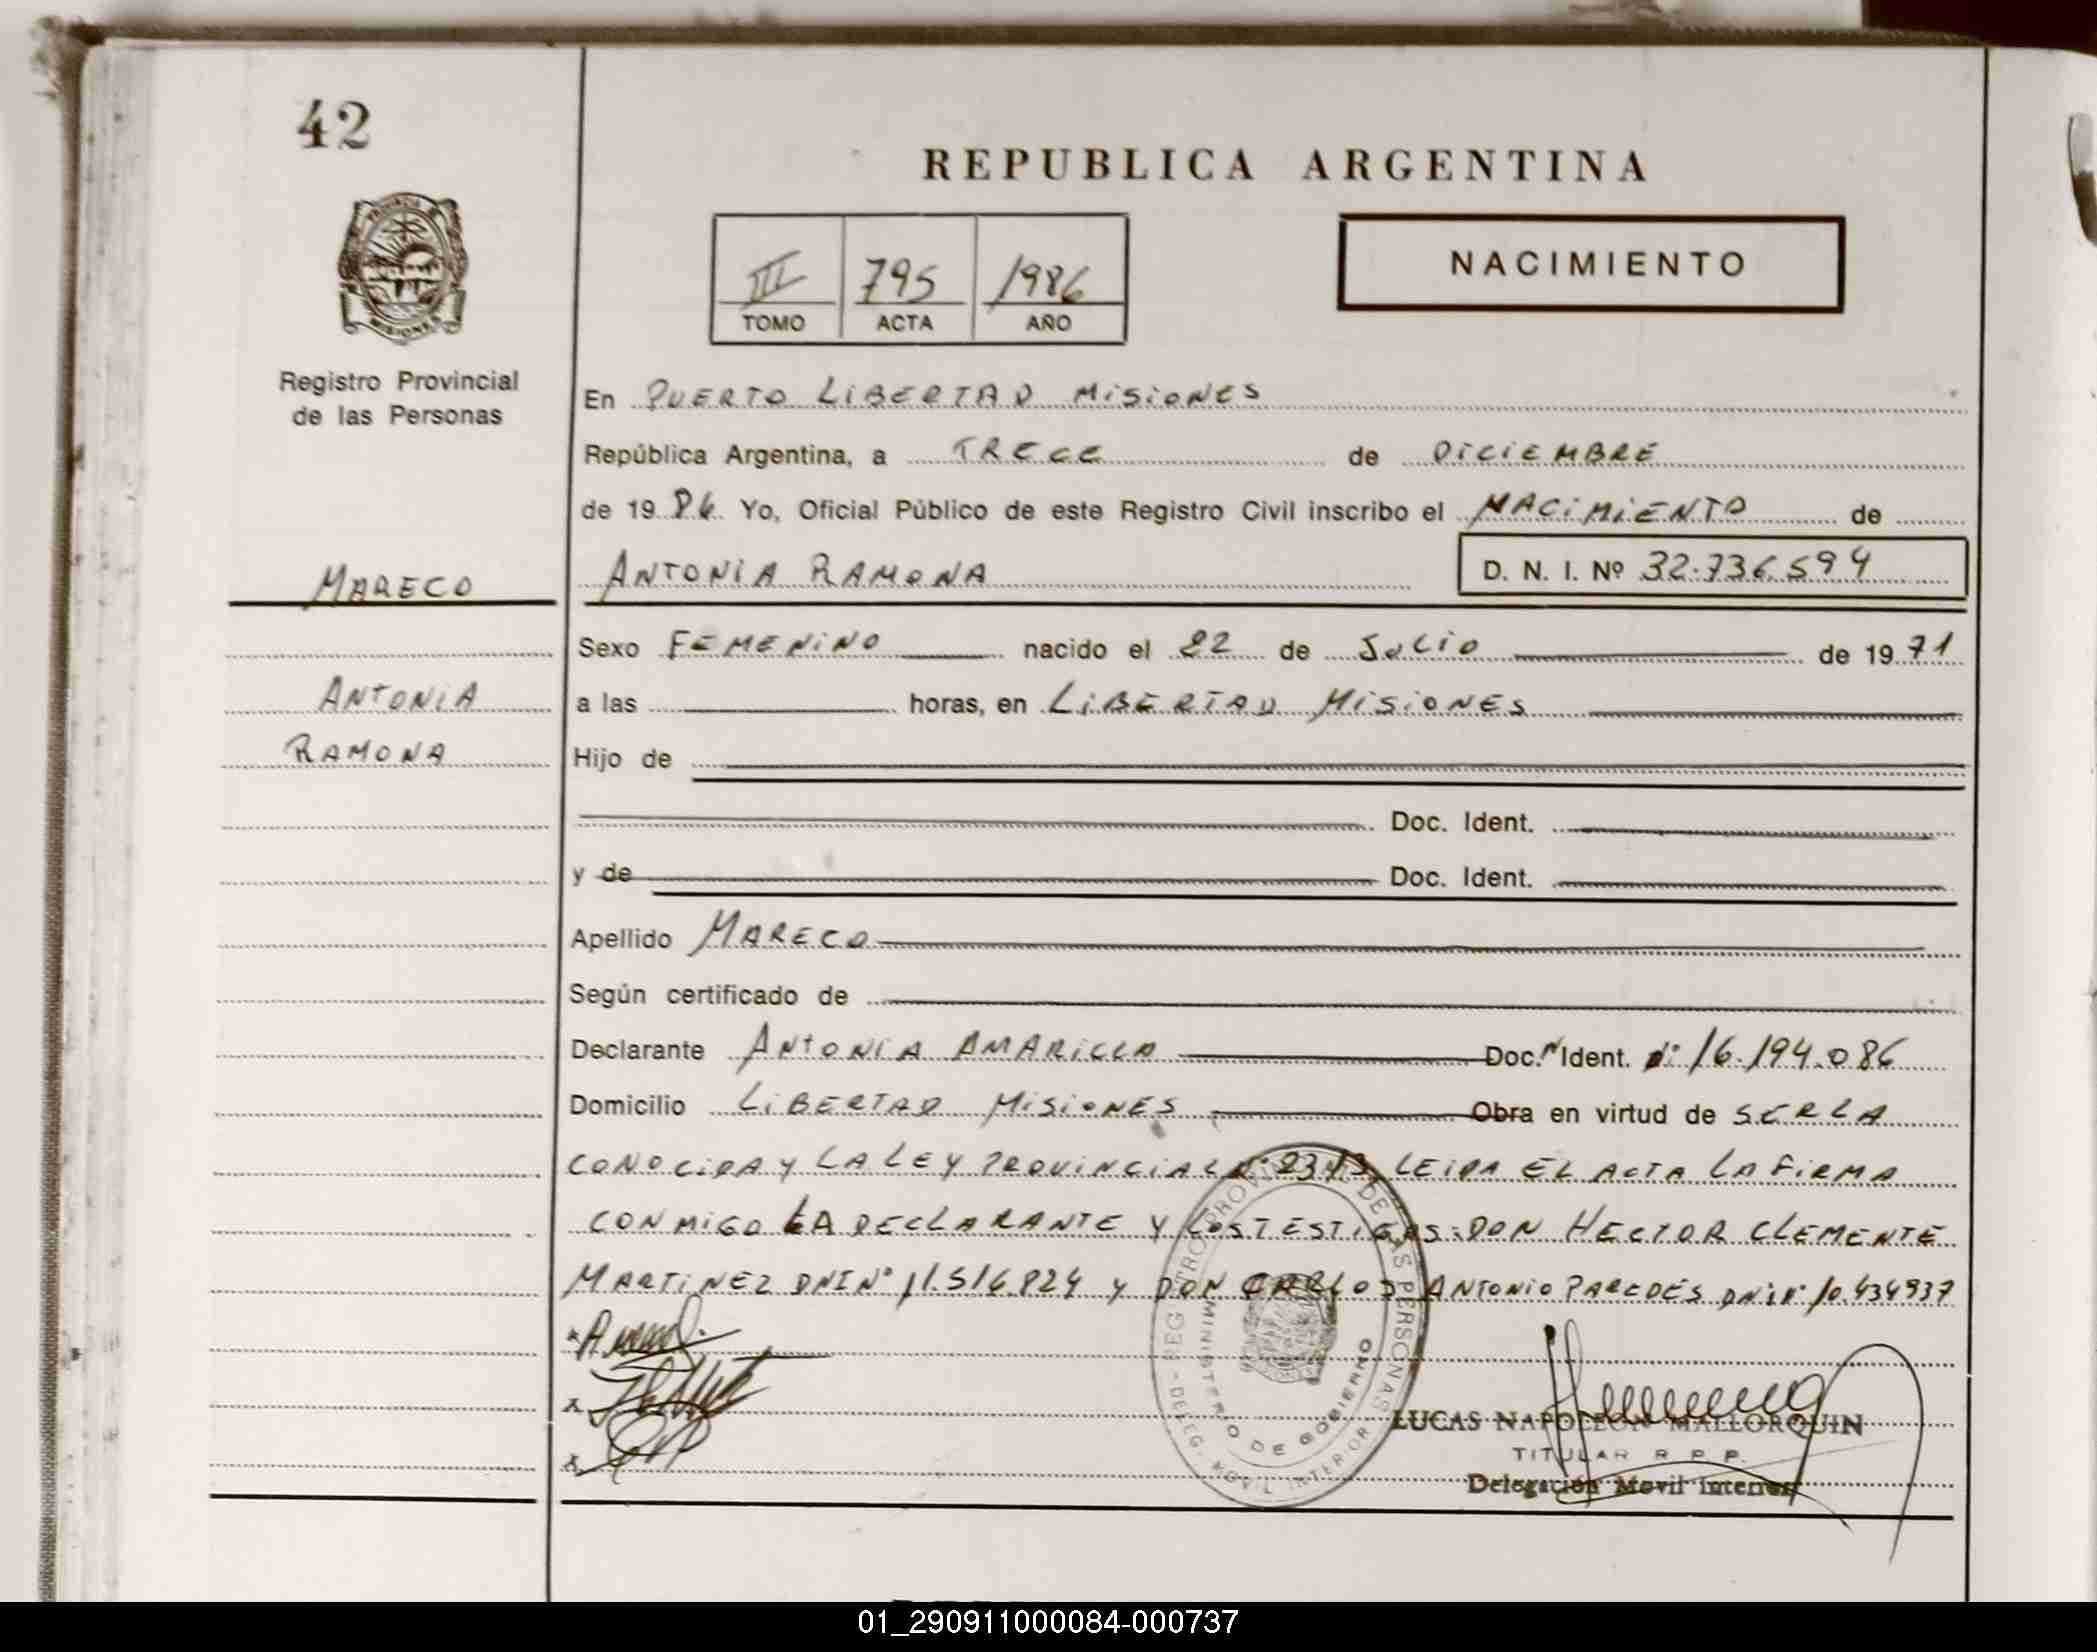 42
REPUBLICA ARGENTINA
PROVINCIA DE
MISIONES
III 795 1986
TOMO ACTA AÑO
NACIMIENTO
Registro Provincial
de las Personas
En PUERTO LIBERTAD MISIONES
República Argentina, a TRECE de DICIEMBRE
de 19 86 Yo, Oficial Público de este Registro Civil inscribo el NACIMIENTO de
MARECO
ANTONIA RAMONA D. N. I. Nº 32.736.594
Sexo FEMENINO nacido el 22 de JULIO de 19 71
ANTONIA
a las horas, en LIBERTAD MISIONES
RAMONA
Hijo de
Doc. Ident.
y de Doc. Ident.
Apellido MARECO
Según certificado de
Declarante ANTONIA AMARILLA Doc. Ident. 16.194.086
Domicilio LIBERTAD MISIONES Obra en virtud de SERLA
CONOCIDA Y LA LEY PROVINCIAL Nº 2313, LEIDA EL ACTA LA FIRMA
CONMIGO LA DECLARANTE Y LOS TESTIGOS: DON HECTOR CLEMENTE
MARTINEZ DNI Nº 11.516.824 Y DON CARLOS ANTONIO PAREDES DNI Nº 10.434937
REGISTRO PROVINCIAL DE LAS PERSONAS
MINISTERIO DE GOBIERNO
- DELEG. MOVIL INTERIOR
LUCAS NAPOLEON MALLORQUIN
TITULAR R. P. P.
Delegación Movil Interior
01_290911000084-000737